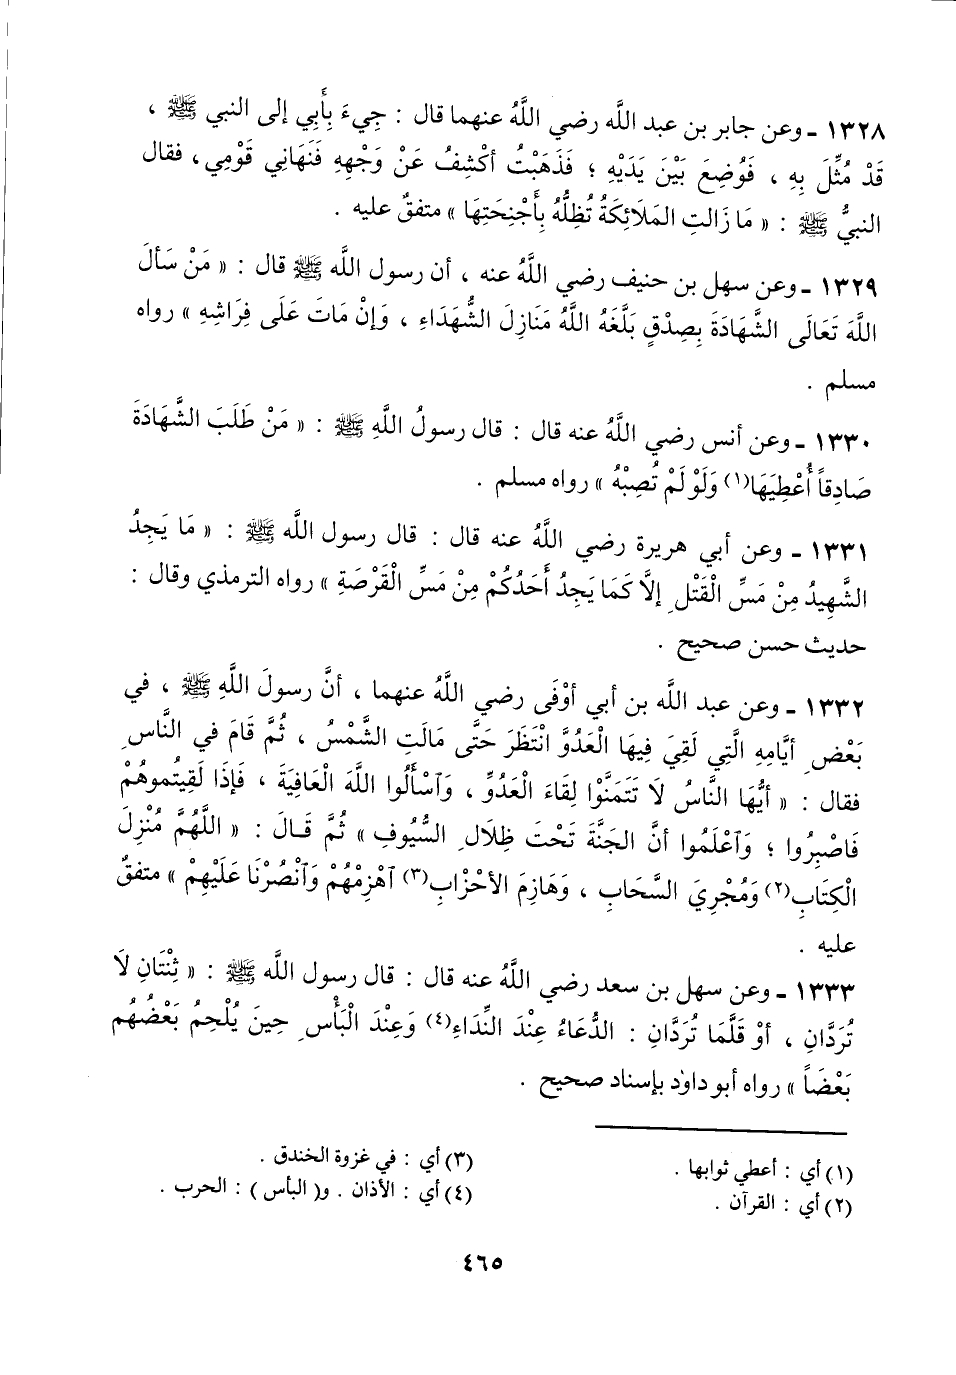 ١٣٢٨ ـ وعن جابر بن عبد اللَّه رضي اللَّهُ عنهما قال : جِيءَ بِأَبِي إلى النبي ﷺ ،
قَدْ مُثِّلَ بِهِ ، فَوُضِعَ بَيْنَ يَدَيْهِ ؛ فَذَهَبْتُ أكْشِفُ عَنْ وَجْهِهِ فَنَهَانِي قَوْمِي، فقال
النبيُّ ﷺ : « مَا زَالتِ المَلائِكَةُ تُظِلُّهُ بِأَجْنِحَتِهَا » متفقٌ عليه .
١٣٢٩ ـ وعن سهل بن حنيف رضي اللَّهُ عنه ، أن رسول اللَّه ﷺ قال : « مَنْ سَألَ
اللَّهَ تَعَالَى الشَّهَادَةَ بِصِدْقٍ بَلَّغَهُ اللَّهُ مَنَازِلَ الشُّهَدَاءِ ، وَإنْ مَاتَ عَلَى فِرَاشِهِ » رواه
مسلم .
١٣٣٠ ـ وعن أنس رضي اللَّهُ عنه قال : قال رسولُ اللَّهِ ﷺ : « مَنْ طَلَبَ الشَّهَادَةَ
صَادِقاً أُعْطِيَهَا(١) وَلَوْ لَمْ تُصِبْهُ » رواه مسلم .
١٣٣١ ـ وعن أبي هريرة رضي اللَّهُ عنه قال : قال رسول اللَّه ﷺ : « مَا يَجِدُ
الشَّهِيدُ مِنْ مَسِّ الْقَتْلِ إلاَّ كَمَا يَجِدُ أَحَدُكُمْ مِنْ مَسِّ الْقَرْصَةِ » رواه الترمذي وقال :
حديث حسن صحيح .
١٣٣٢ ـ وعن عبد اللَّه بن أبي أوْفَى رضي اللَّهُ عنهما ، أنَّ رسولَ اللَّهِ ﷺ ، في
بَعْضِ أيَّامِهِ الَّتِي لَقِيَ فِيهَا الْعَدُوَّ انْتَظَرَ حَتَّى مَالَتِ الشَّمْسُ ، ثُمَّ قَامَ في النَّاسِ
فقال : « أيُّهَا النَّاسُ لَا تَتَمَنَّوْا لِقَاءَ الْعَدُوِّ ، وَٱسْأَلُوا اللَّهَ الْعَافِيَةَ ، فَإذَا لَقِيتُموهُمْ
فَاصْبِرُوا ؛ وَٱعْلَمُوا أنَّ الجَنَّةَ تَحْتَ ظِلَالِ السُّيُوفِ » ثُمَّ قَـالَ : « اللَّهُمَّ مُنْزِلَ
الْكِتَابِ(٢) وَمُجْرِيَ السَّحَابِ ، وَهَازِمَ الأحْزَابِ(٣) ٱهْزِمْهُمْ وَٱنْصُرْنَا عَلَيْهِمْ » متفقٌ
عليه .
١٣٣٣ ـ وعن سهل بن سعد رضي اللَّهُ عنه قال : قال رسول اللَّه ﷺ : « ثِنْتَانِ لَا
تُرَدَّانِ ، أوْ قَلَّمَا تُرَدَّانِ : الدُّعَاءُ عِنْدَ النِّدَاءِ(٤) وَعِنْدَ الْبَأْسِ حِينَ يُلْحِمُ بَعْضُهُم
بَعْضَاً » رواه أبو داوٰد بإسناد صحيح .
(١) أي : أعطي ثوابها .
(٢) أي : القرآن .
(٣) أي : في غزوة الخندق .
(٤) أي : الأذان . و( البأس ) : الحرب .
٤٦٥